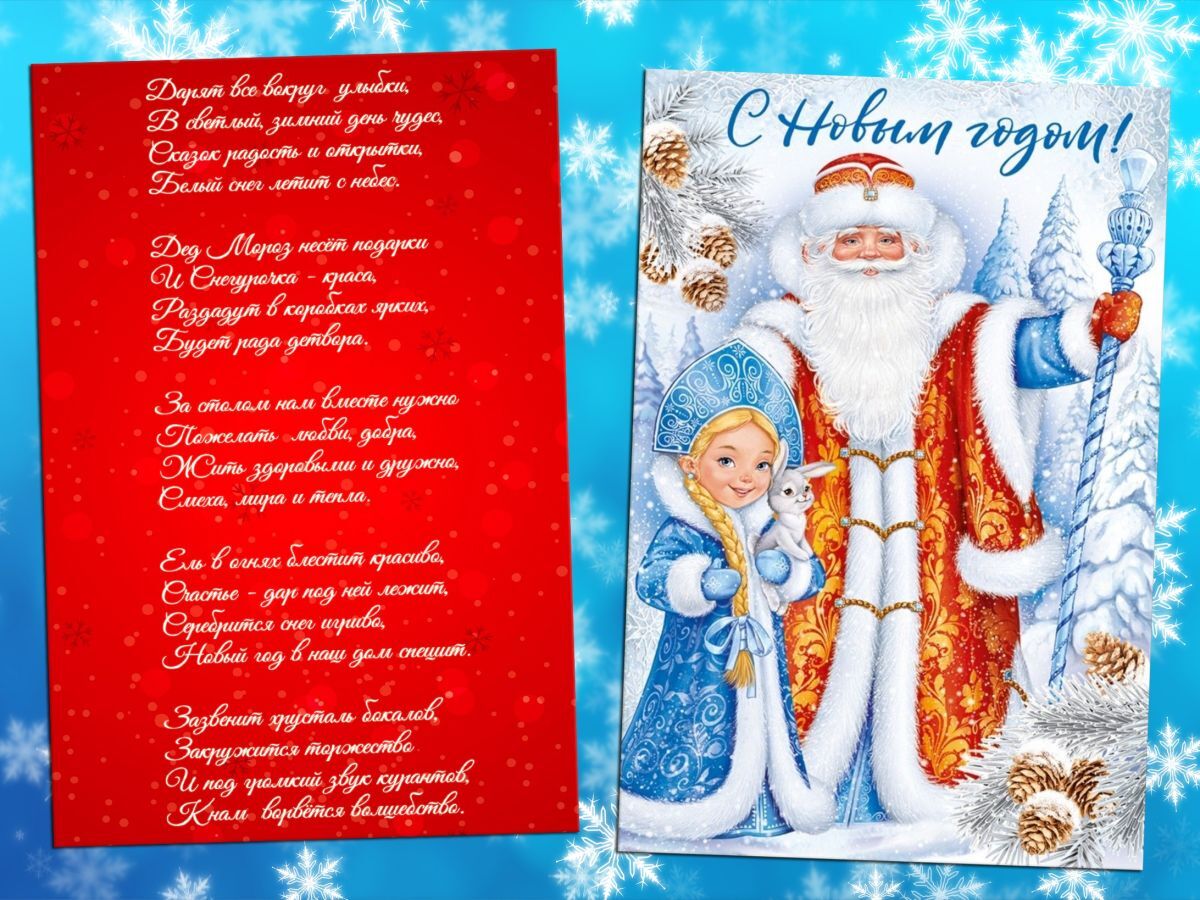 Дарят все вокруг улыбки,
В светлый, зимний день чудес,
Сказок радость и открытки,
Белый снег летит с небес.
Дед Мороз несёт подарки
И Снегурочка - краса,
Раздадут в коробках ярких,
Будет рада детвора.
За столом нам вместе нужно
Пожелать любви, добра,
Жить здоровыми и дружно,
Смеха, мира и тепла.
Ель в огнях блестит красиво,
Счастье - дар под ней лежит,
Серебрится снег игриво,
Новый год в наш дом спешит.
Зазвенит хрусталь бокалов,
Закружится торжество
И под громкий звук курантов,
К нам ворвётся волшебство.
С Новым годом!